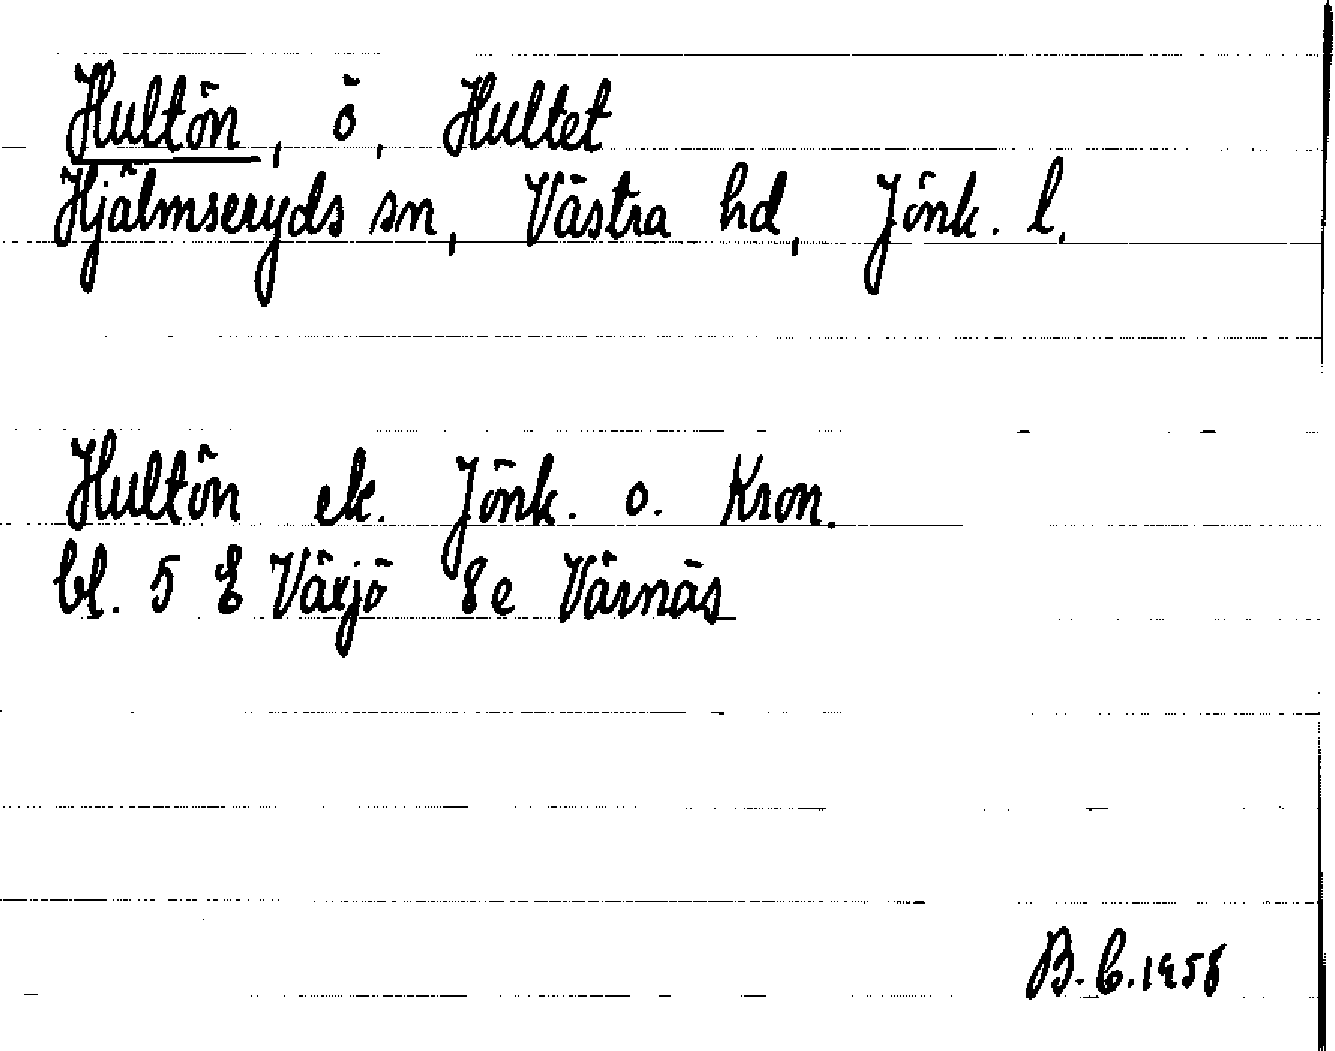 Hultön, ö, Hultet
Hjälmseryds sn, Västra hd, Jönk. l.
Hultön ek. Jönk. o. Kron.
bl. 5 E Växjö 8e Värnäs
B.C.1958